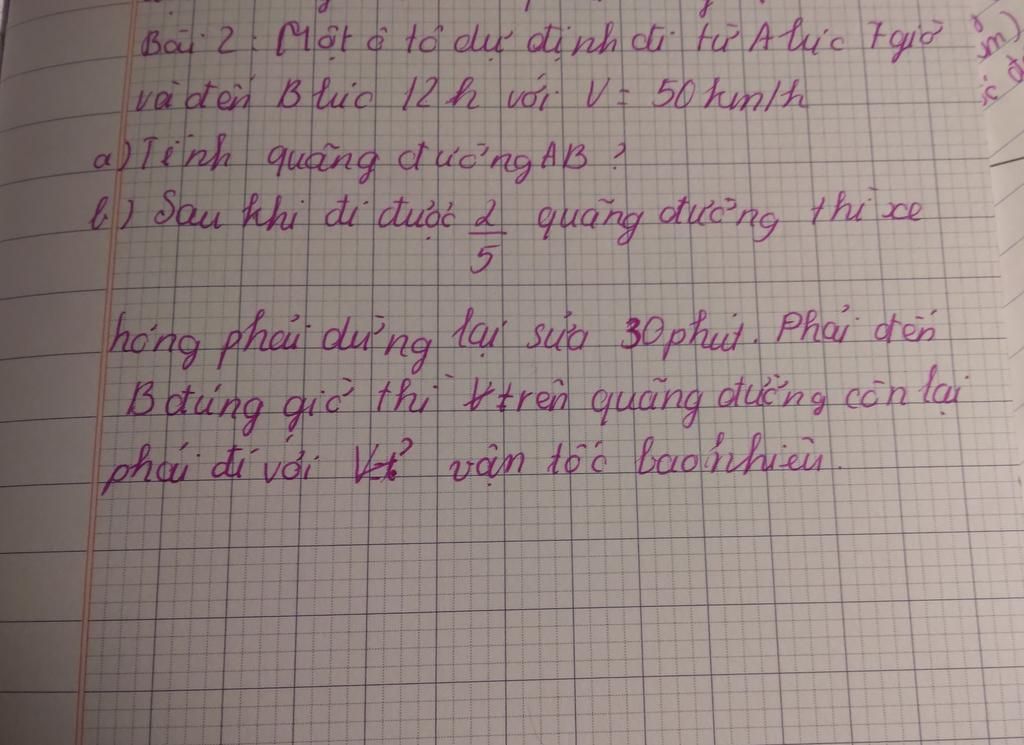 Bài 2: Một ô tô dự định đi từ A lúc 7 giờ
và đến B lúc 12h với V = 50 km/h
a) Tính quãng đường AB?
b) Sau khi đi được 2/5 quãng đường thì xe
hỏng phải dừng lại sửa 30 phút. Phải đến
B đúng giờ thì trên quãng đường còn lại
phải đi với vận tốc bao nhiêu.